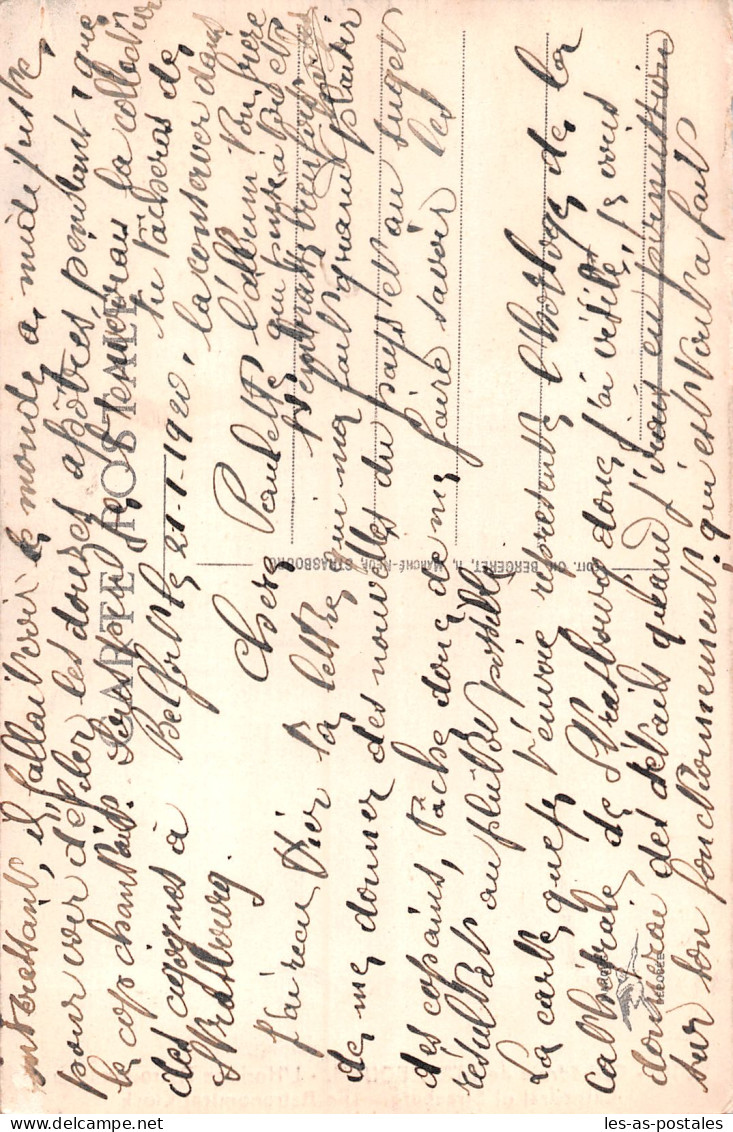 CARTE POSTALE
Belfort le 21-1-1920,
Chère Paulette,
J'ai reçu hier ta lettre qui me fait grand plaisir
de me donner des nouvelles du pays et au suget
des copains, tâche donc de me faire savoir les
résultats au plutôt possible
La carte que je t'envoie représente l'horloge de la
cathédrale de Strasbourg donc j'ai visité, je vous
donnerai des détails quand j'irais en permission
sur son fonctionnement qui est tout à fait
intéressant, il fallait voir le monde à midi juste,
pour voir défiler les douzes apôtres, pendant que
le coq chantait. je t'enverrai la collection
des cigognes à
Strasbourg.
tu tâcheras de
la conserver dans
l'album Ton frère
qui pense à vous et
EDIT. CH. BERGERET, 11, MARCHÉ-NEUF, STRASBOURG
les-as-postales.com